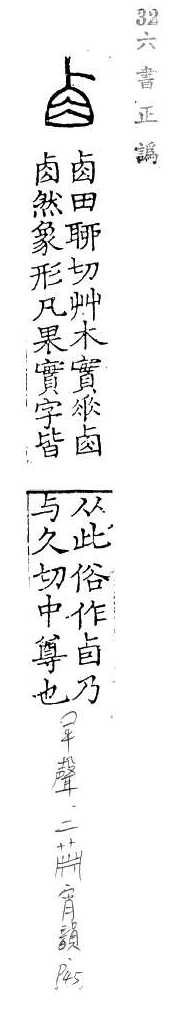 32 六書正譌
卤
卤田聊切艸木實𠂹卤
卤然象形凡果實字皆
从此俗作卣乃
与久切中尊也
平聲.二蕭宵韻 P45